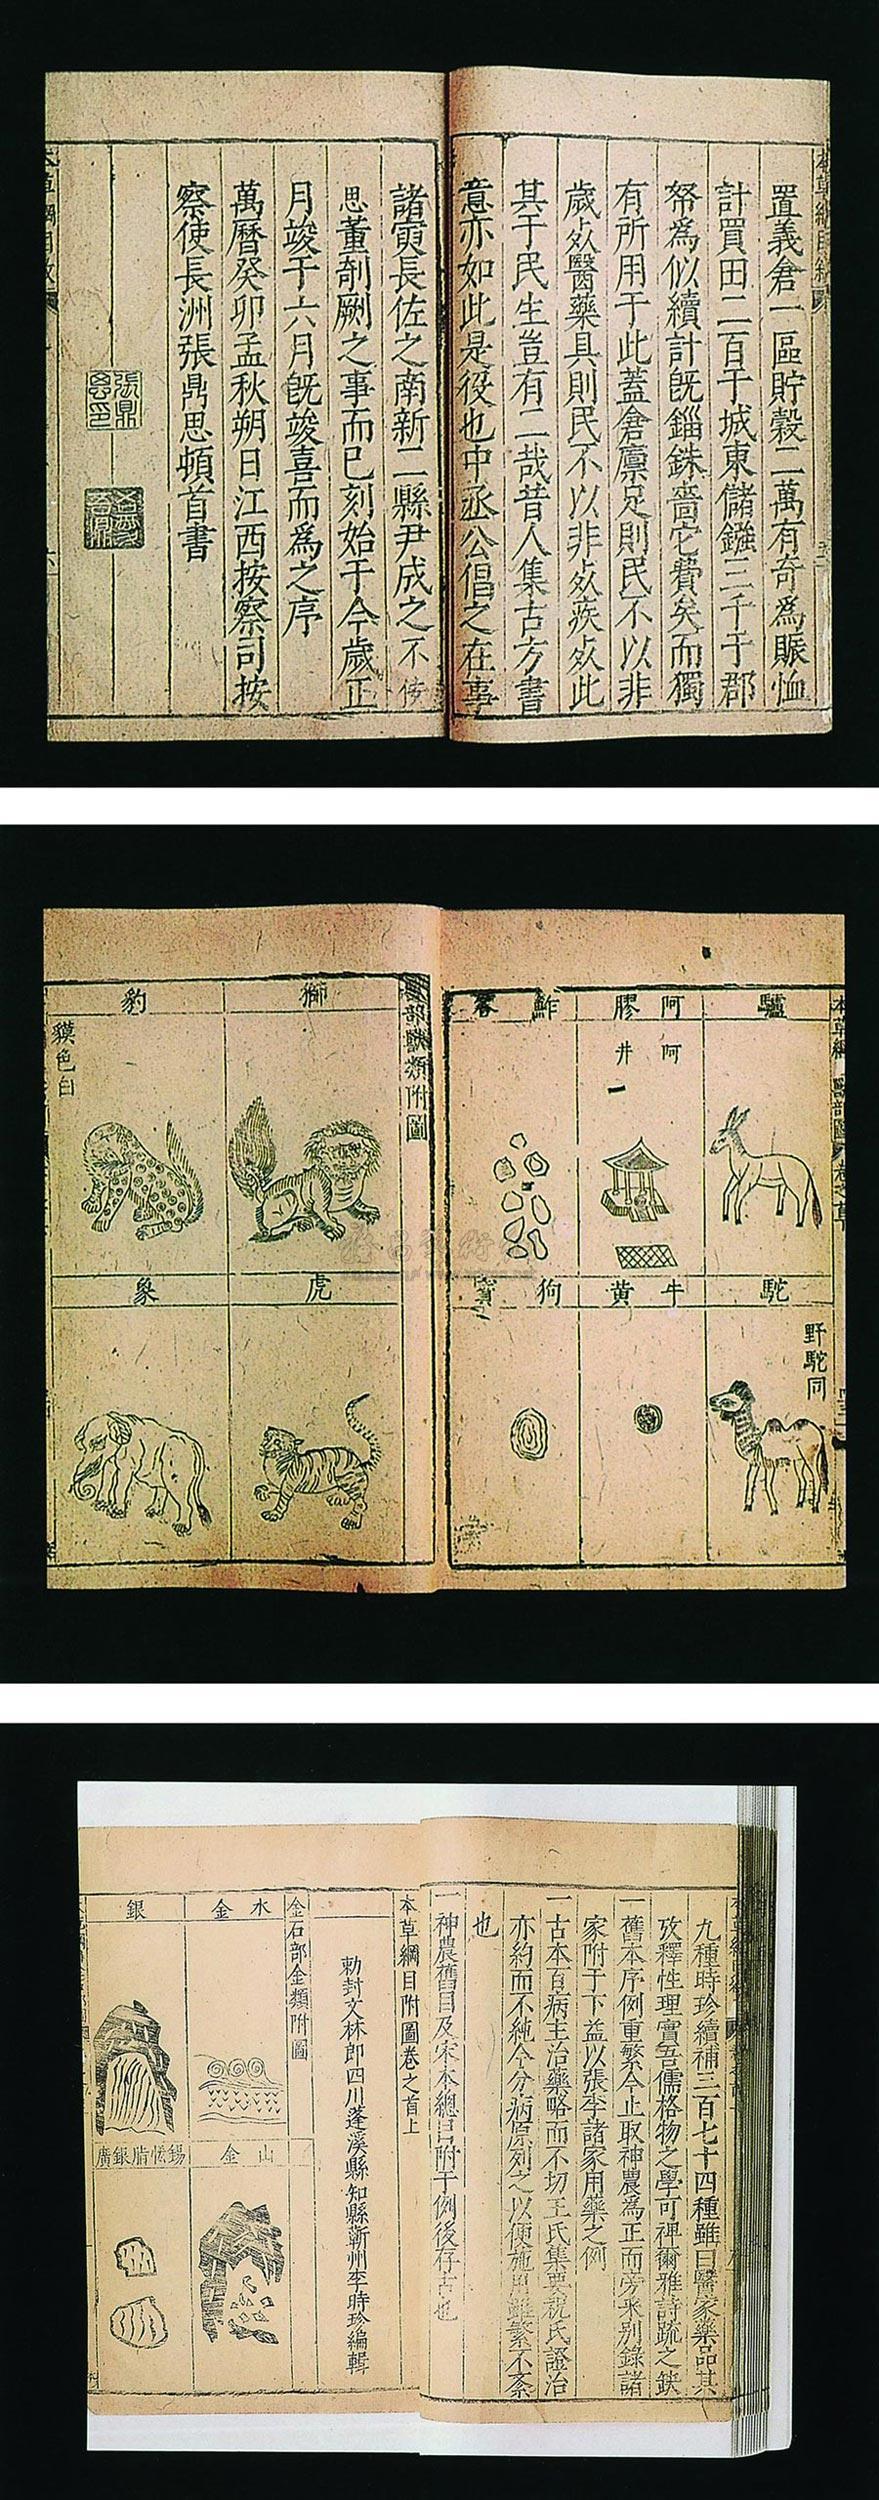 置義倉一區貯穀二萬有奇爲賑恤
計買田二百于城東儲鏹三千于郡
帑爲似續計旣錙銖嗇它費矣而獨
有所用于此蓋倉廪足則民不以非
歲歺醫藥具則民不以非歺疾歺此
其于民生豈有二哉昔人集古方書
意亦如此是役也中丞公倡之在事
諸寅長佐之南新二縣尹成之不佞
思董剞劂之事而已刻始于今歲正
月竣于六月旣竣喜而爲之序
萬曆癸卯孟秋朔日江西按察司按
察使長洲張鼎思頓首書
驢
阿膠
阿井
鮓荅
駝
野駝同
牛黃
狗寶
部獸類附圖
獅
豹
貘色白
虎
象
九種時珍續補三百七十四種雖曰醫家藥品其
攷釋性理實吾儒格物之學可裨爾雅詩疏之缺
一舊本序例重繁今止取神農爲正而旁采別錄諸
家附于下益以張李諸家用藥之例
一古本百病主治藥略而不切王氏集要祝氏證治
亦約而不純今分病原列之以便施用雖繁不紊
也
一神農舊目及宋本總目附于例後存古也
本草綱目附圖卷之首上
勑封文林郎四川蓬溪縣知縣蘄州李時珍編輯
金石部金類附圖
水金
銀
山金
錫恡脂銀廣